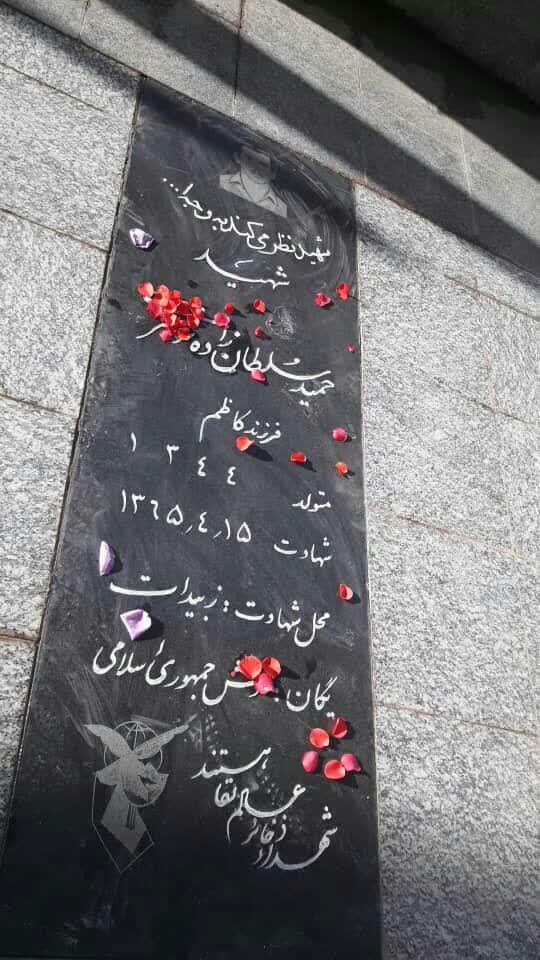 شهید نظر می‌کند به وجه الله...
شهید
حمید سلطان زاده
فرزند کاظم
متولد ۱۳۴۴
شهادت ۱۳۶۵٫۴٫۱۵
محل شهادت : زبیدات
یگان : ش جمهوری اسلامی
شهدا ذخائر
عالم بقا
هستند